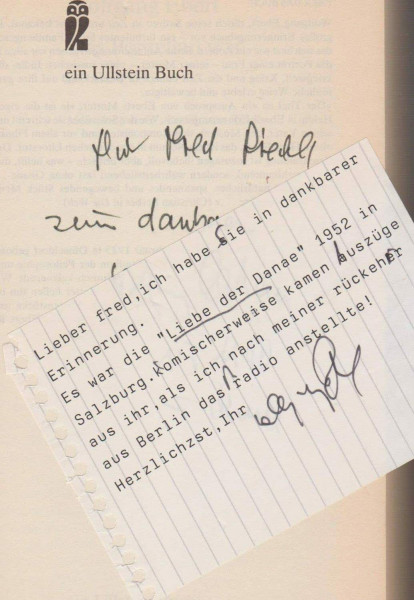 ein Ullstein Buch
Fred
zum
Lieber fred,ich habe Sie in dankbarer
Erinnerung.
Es war die "Liebe der Danae" 1952 in
Salzburg.Komischerweise kamen Auszüge
aus ihr,als ich nach meiner rückehr
aus Berlin das radio anstellte!
Herzlichzst,Ihr